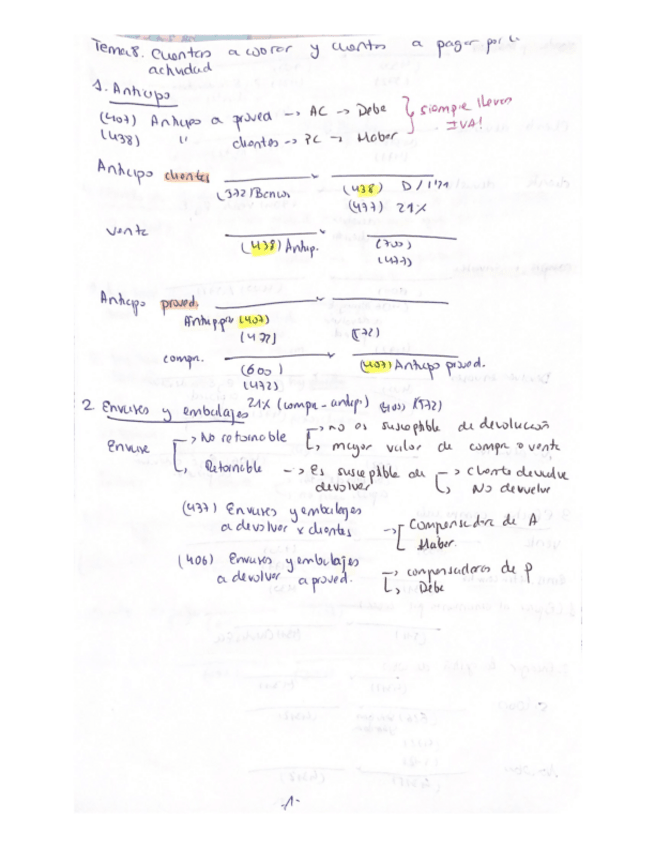 Tema 8. Cuentas a cobrar y cuentas a pagar por la
actividad
1. Anticipo
(407) Anticipo a proved -> AC -> Debe
(438) " clientes -> PC -> Haber
siempre llevan
IVA!
Anticipo clientes
(572) Bancos (438) D/
(477) 21%
venta
(438) Antip. (700)
(477)
Anticipo proved.
Anticipo (407)
(472) (572)
compr. (600) (407) Anticipo proved.
(472)
21% (compra - anticip.) (400) (572)
2 Envases y embalajes
Envase
-> No retornable -> no es susceptible de devolución
-> mayor valor de compra o venta
-> Retornable -> Es susceptible de -> cliente devuelve
devolver No devuelve
(437) Envases y embalajes
a devolver x clientes -> Compensadora de A
Haber.
(406) Envases y embalajes
a devolver a proved. -> compensadoras de P
Debe
-1-